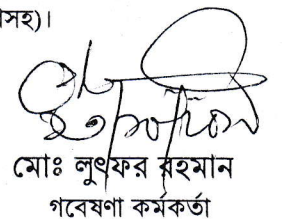 সহ)।
মোঃ লুৎফর রহমান
গবেষণা কর্মকর্তা